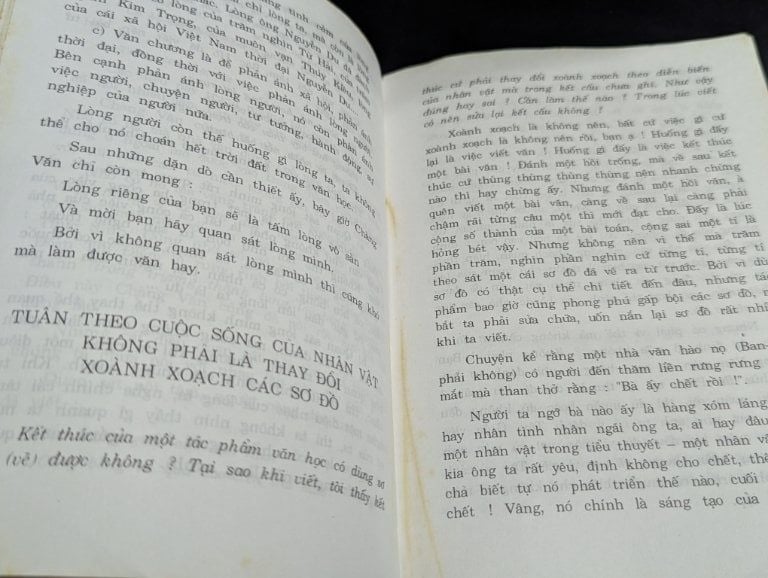 chỉ lòng ta, mà còn
lòng của trăm nghìn Từ Hải, của trăm
Kim Trọng, của muôn vạn Thúy Kiều, lòng
của cái xã hội Việt Nam thời đại Nguyễn Du.
c) Văn chương là để phản ánh xã hội, phản ánh
thời đại, đồng thời với việc phản ánh lòng người.
Bên cạnh phản ánh lòng người, nó còn phản ánh
việc người, chuyện người, tư tưởng, hành động sự
nghiệp của người nữa.
Lòng người còn thế huống gì lòng ta, ta không
thể cho nó choán hết trời đất trong văn học.
Sau những dặn dò cần thiết ấy, bây giờ Chàng
Văn chỉ còn mong :
Lòng riêng của bạn sẽ là tấm lòng vô sản
Và mời bạn hãy quan sát lòng mình.
Bởi vì không quan sát lòng mình thì cũng khó
mà làm được văn hay.
TUÂN THEO CUỘC SỐNG CỦA NHÂN VẬT
KHÔNG PHẢI LÀ THAY ĐỔI
XOÀNH XOẠCH CÁC SƠ ĐỒ
Kết thúc của một tác phẩm văn học có đúng sơ
(vẽ) được không ? Tại sao khi viết, tôi thấy kết
thúc cứ phải thay đổi xoành xoạch theo diễn biến
của nhân vật mà trong kết cấu chưa ghi. Như vậy
đúng hay sai ? Cần làm thế nào ? Trong lúc viết
có nên sửa lại kết cấu không ?
Xoành xoạch là không nên, bất cứ việc gì cứ
xoành xoạch là không nên rồi, bạn ạ ! Huống gì đấy
lại là việc viết văn ! Huống gì đấy là việc kết thúc
một bài văn ! Đánh một hồi trống, mà về sau kết
thúc cứ thùng thùng thùng thùng nên nhanh chừng
nào thì hay chừng ấy. Nhưng đánh một hồi văn, à
quên viết một bài văn, càng về sau lại càng phải
chậm rãi từng câu một thì mới đạt cho. Đấy là lúc
cộng số thành của một bài toán, cộng sai một tí là
hỏng bét vậy. Nhưng không nên vì thế mà trăm
phần trăm, nghìn phần nghìn cứ từng tí, từng tí
theo sát một cái sơ đồ đã vẽ ra từ trước. Bởi vì dù
sơ đồ có thật cụ thể chi tiết đến đâu, nhưng tác
phẩm bao giờ cũng phong phú gấp bội các sơ đồ, n
bắt ta phải sửa chữa, uốn nắn lại sơ đồ rất nhi
khi ta viết.
Chuyện kể rằng một nhà văn hào nọ (Ban-
phải không) có người đến thăm liền rưng rưng
mắt mà than thở rằng : "Bà ấy chết rồi !".
Người ta ngỡ bà nào ấy là hàng xóm láng
hay nhân tình nhân ngãi ông ta, ai hay đâu
một nhân vật trong tiểu thuyết – một nhân vậ
kia ông ta rất yêu, định không cho chết, thế
chả biết tự nó phát triển thế nào, cuối
chết ! Vâng, nó chính là sáng tạo của